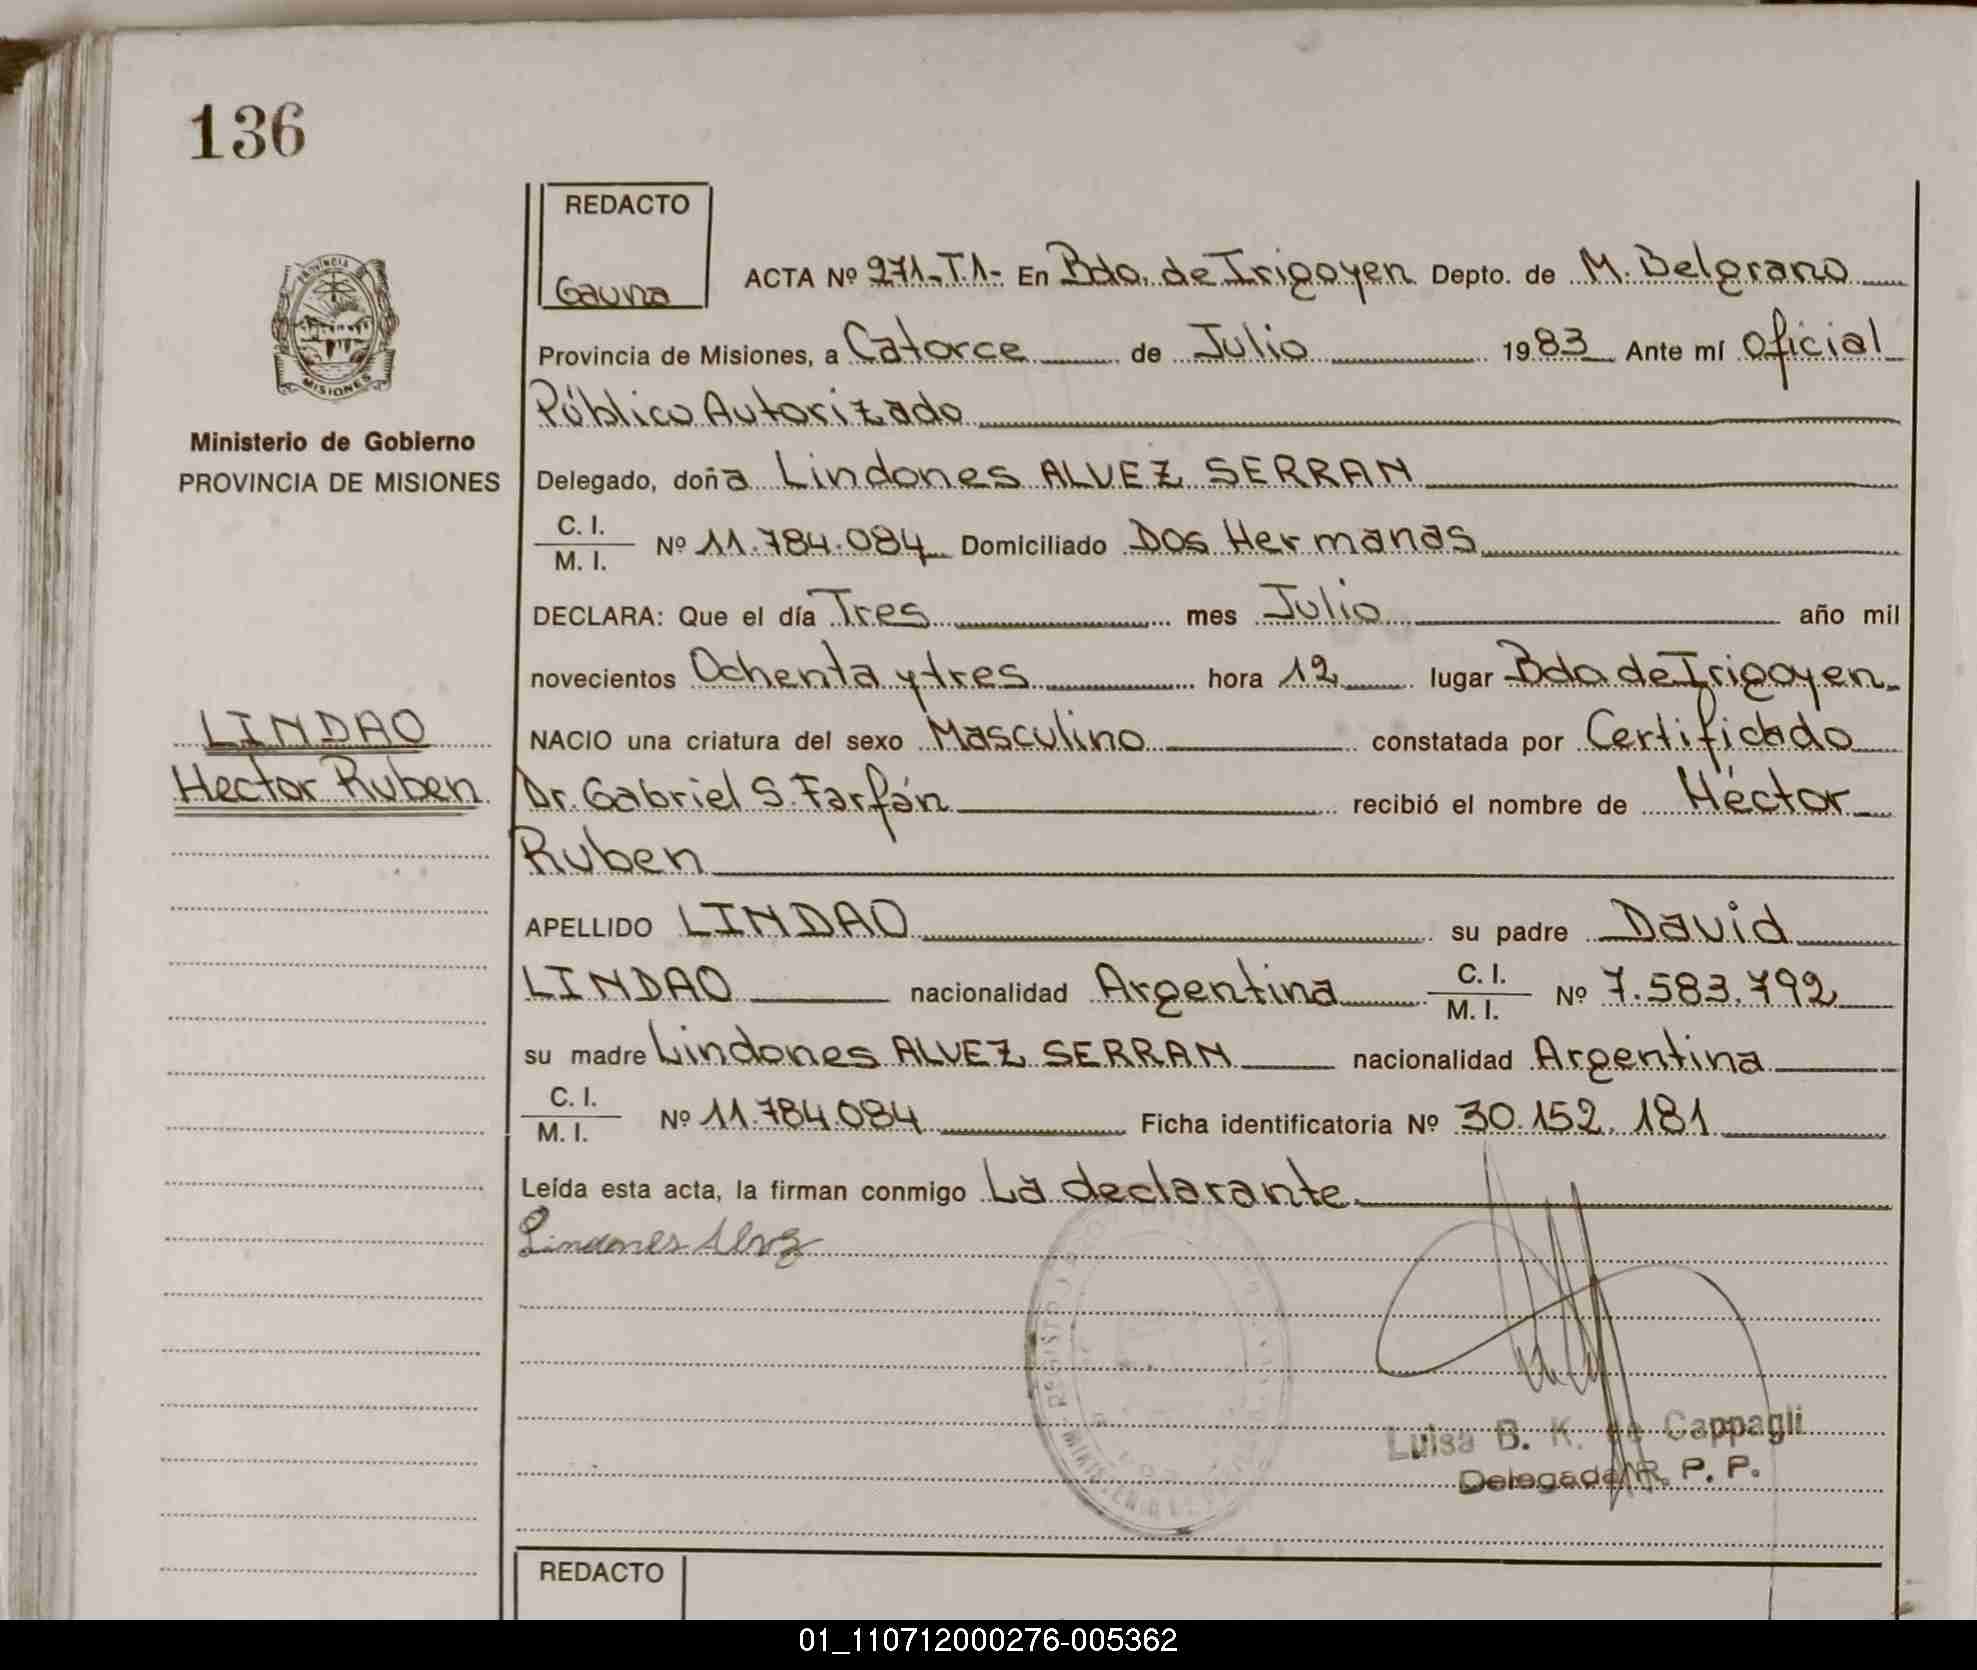 136
REDACTO
Gauna
PROVINCIA
MISIONES
Ministerio de Gobierno
PROVINCIA DE MISIONES
LINDAO
Hector Ruben
ACTA Nº 271-T.1- En Bdo. de Irigoyen Depto. de M. Belgrano
Provincia de Misiones, a Catorce de Julio 1983 Ante mí Oficial
Público Autorizado
Delegado, doña Lindones ALVEZ SERRAN
C. I.
M. I. Nº 11.784.084 Domiciliado Dos Hermanas
DECLARA: Que el día Tres mes Julio año mil
novecientos Ochenta y tres hora 12 lugar Bdo de Irigoyen
NACIO una criatura del sexo Masculino constatada por Certificado
Dr. Gabriel S. Farfán recibió el nombre de Héctor
Ruben
APELLIDO LINDAO su padre David
LINDAO nacionalidad Argentina C. I. M. I. Nº 7.583.792
su madre Lindones ALVEZ SERRAN nacionalidad Argentina
C. I.
M. I. Nº 11.784.084 Ficha identificatoria Nº 30.152.181
Leída esta acta, la firman conmigo La declarante.
Lindones Alvez
Luisa B. K. de Cappagli
Delegada R. P. P.
REDACTO
01_110712000276-005362